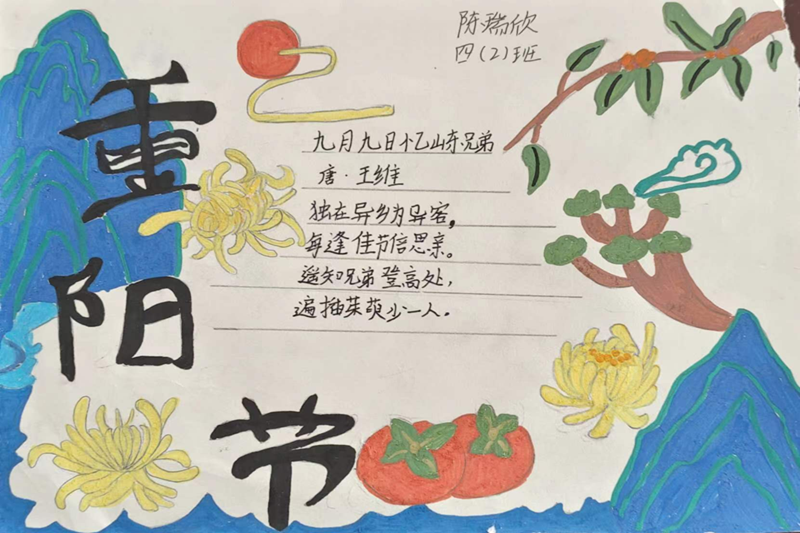 陈瑞欣
四(2)班
九月九日忆山东兄弟
唐·王维
独在异乡为异客,
每逢佳节信思亲。
遥知兄弟登高处,
遍插茱萸少一人.
重
阳
节